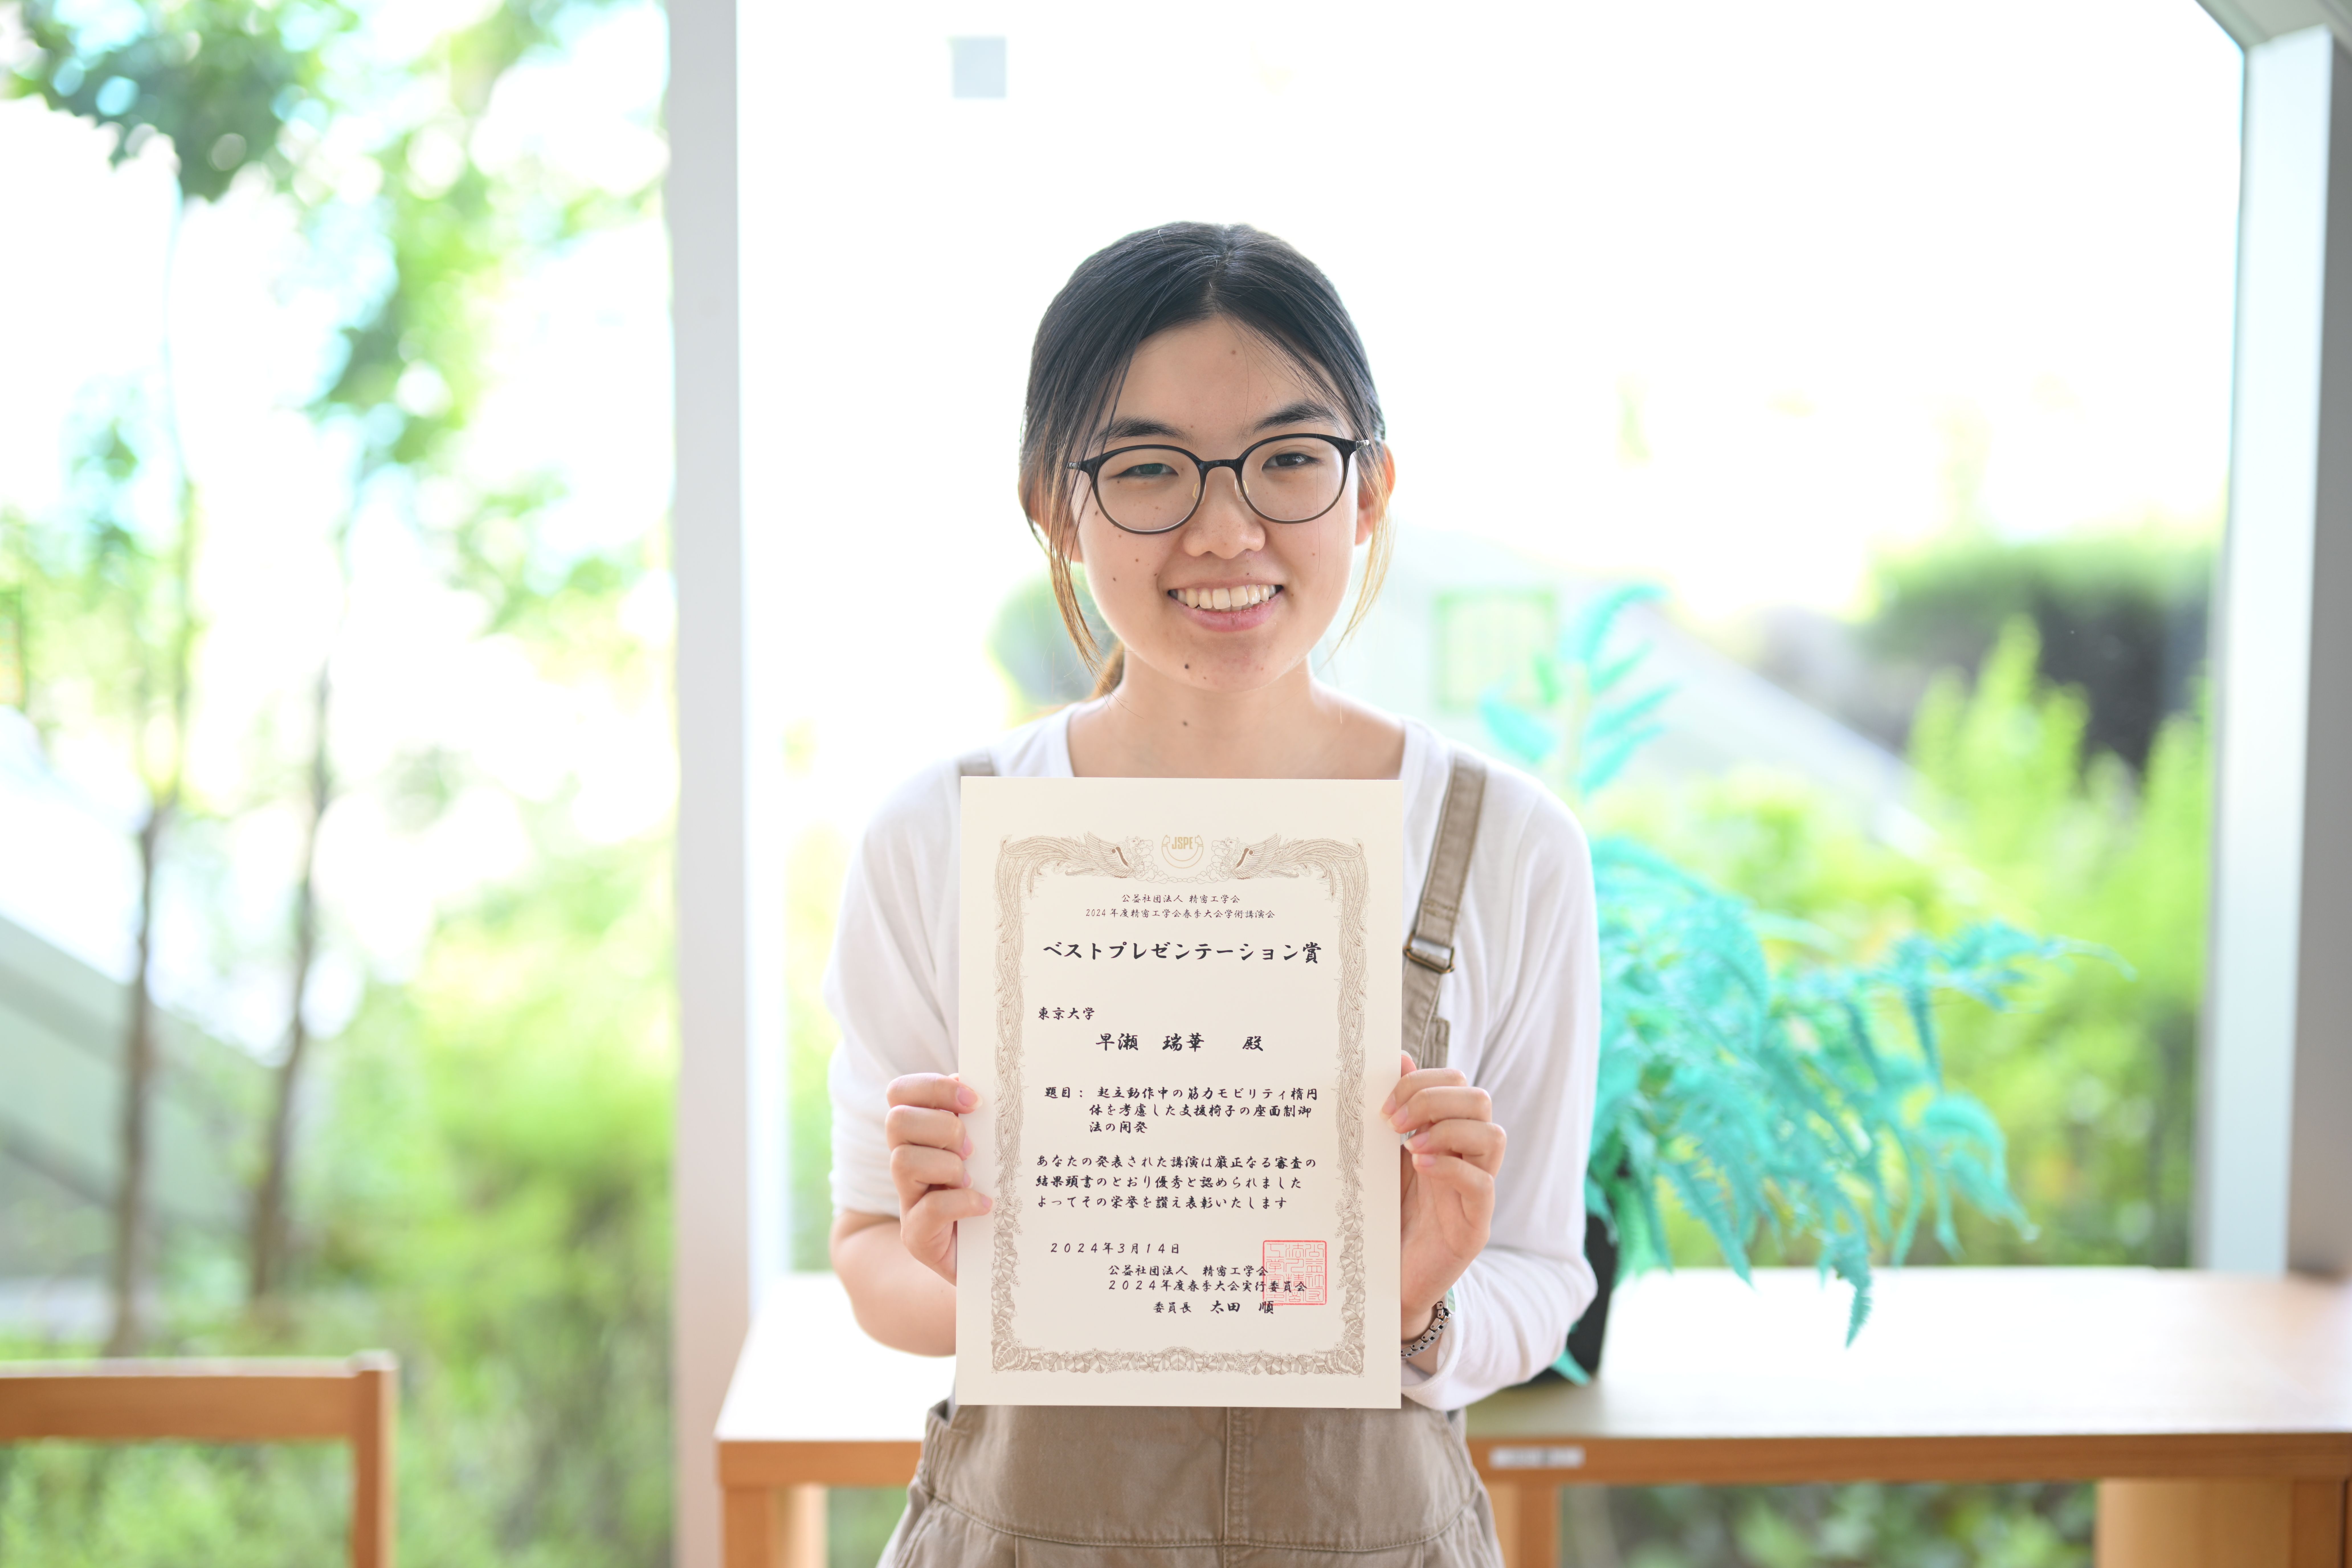 JSPE
公益社団法人 精密工学会
2024年度精密工学会春季大会学術講演会
ベストプレゼンテーション賞
東京大学
早瀬 瑞華 殿
題目: 起立動作中の筋力モビリティ楕円
体を考慮した支援椅子の座面制御
法の開発
あなたの発表された講演は厳正なる審査の
結果頭書のとおり優秀と認められました
よってその栄誉を讃え表彰いたします
2024年3月14日
公益社団法人 精密工学会
2024年度春季大会実行委員会
委員長 太田 順